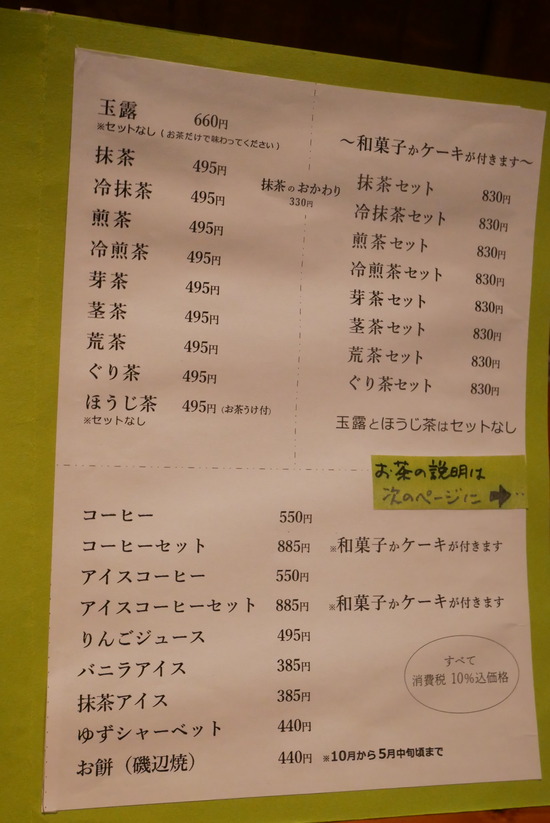 玉露 660円
※セットなし（お茶だけで味わってください）
抹茶 495円
抹茶のおかわり
330円
冷抹茶 495円
煎茶 495円
冷煎茶 495円
芽茶 495円
茎茶 495円
荒茶 495円
ぐり茶 495円
ほうじ茶 495円（お茶うけ付）
※セットなし
～和菓子かケーキが付きます～
抹茶セット 830円
冷抹茶セット 830円
煎茶セット 830円
冷煎茶セット 830円
芽茶セット 830円
茎茶セット 830円
荒茶セット 830円
ぐり茶セット 830円
玉露とほうじ茶はセットなし
お茶の説明は
次のページに➡
コーヒー 550円
コーヒーセット 885円 ※和菓子かケーキが付きます
アイスコーヒー 550円
アイスコーヒーセット 885円 ※和菓子かケーキが付きます
りんごジュース 495円
バニラアイス 385円
抹茶アイス 385円
ゆずシャーベット 440円
お餅（磯辺焼） 440円 ※10月から5月中旬頃まで
すべて
消費税 10%込価格